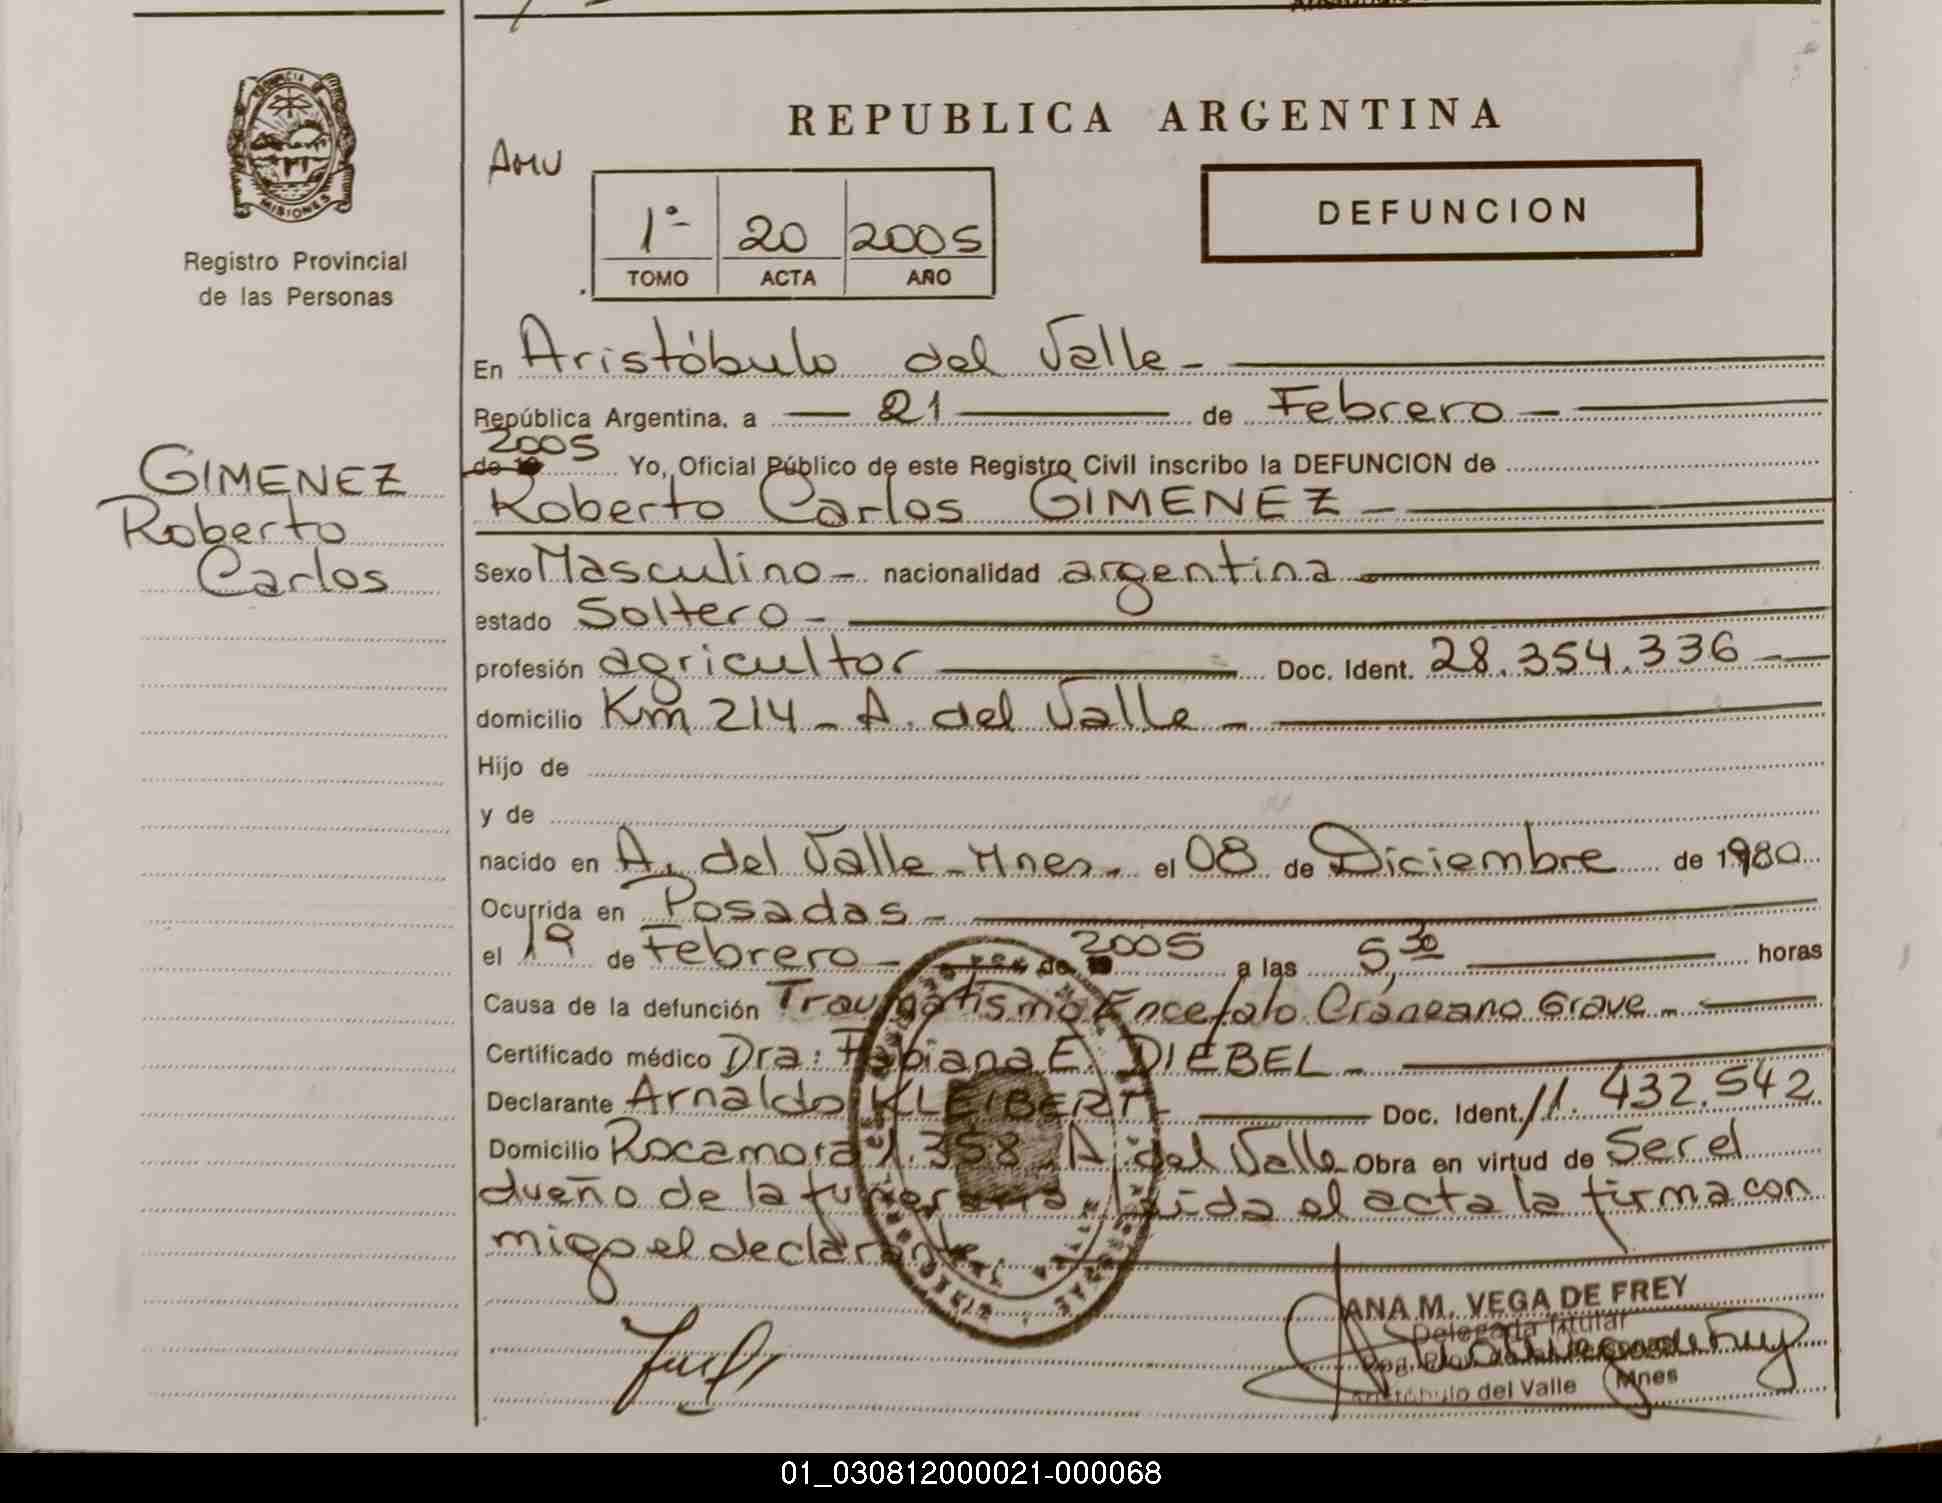 REPUBLICA ARGENTINA
PROVINCIA DE
MISIONES
Registro Provincial
de las Personas
AMV
DEFUNCION
1º 20 2005
TOMO ACTA AÑO
En Aristóbulo del Valle -
República Argentina, a 21 de Febrero -
de 19 2005 Yo, Oficial Público de este Registro Civil inscribo la DEFUNCION de
GIMENEZ
Roberto
Carlos
Roberto Carlos GIMENEZ -
Sexo Masculino - nacionalidad argentina
estado Soltero -
profesión agricultor Doc. Ident. 28.354.336 -
domicilio Km 214 - A. del Valle -
Hijo de
y de
nacido en A. del Valle - Mnes. el 08 de Diciembre de 1980
Ocurrida en Posadas -
el 19 de Febrero - de 2005 a las 5,30 horas
Causa de la defunción Traumatismo Encefalo Craneano Grave -
Certificado médico Dra: Fabiana E. DIEBEL -
Declarante Arnaldo KLEIBERT - Doc. Ident. 11.432.542
Domicilio Rocamora 1.358 A. del Valle Obra en virtud de Ser el
dueño de la funeraria. Leida el acta la firma con
migo el declarante.
ANA M. VEGA DE FREY
Delegada Titular
Aristóbulo del Valle Mnes
01_030812000021-000068